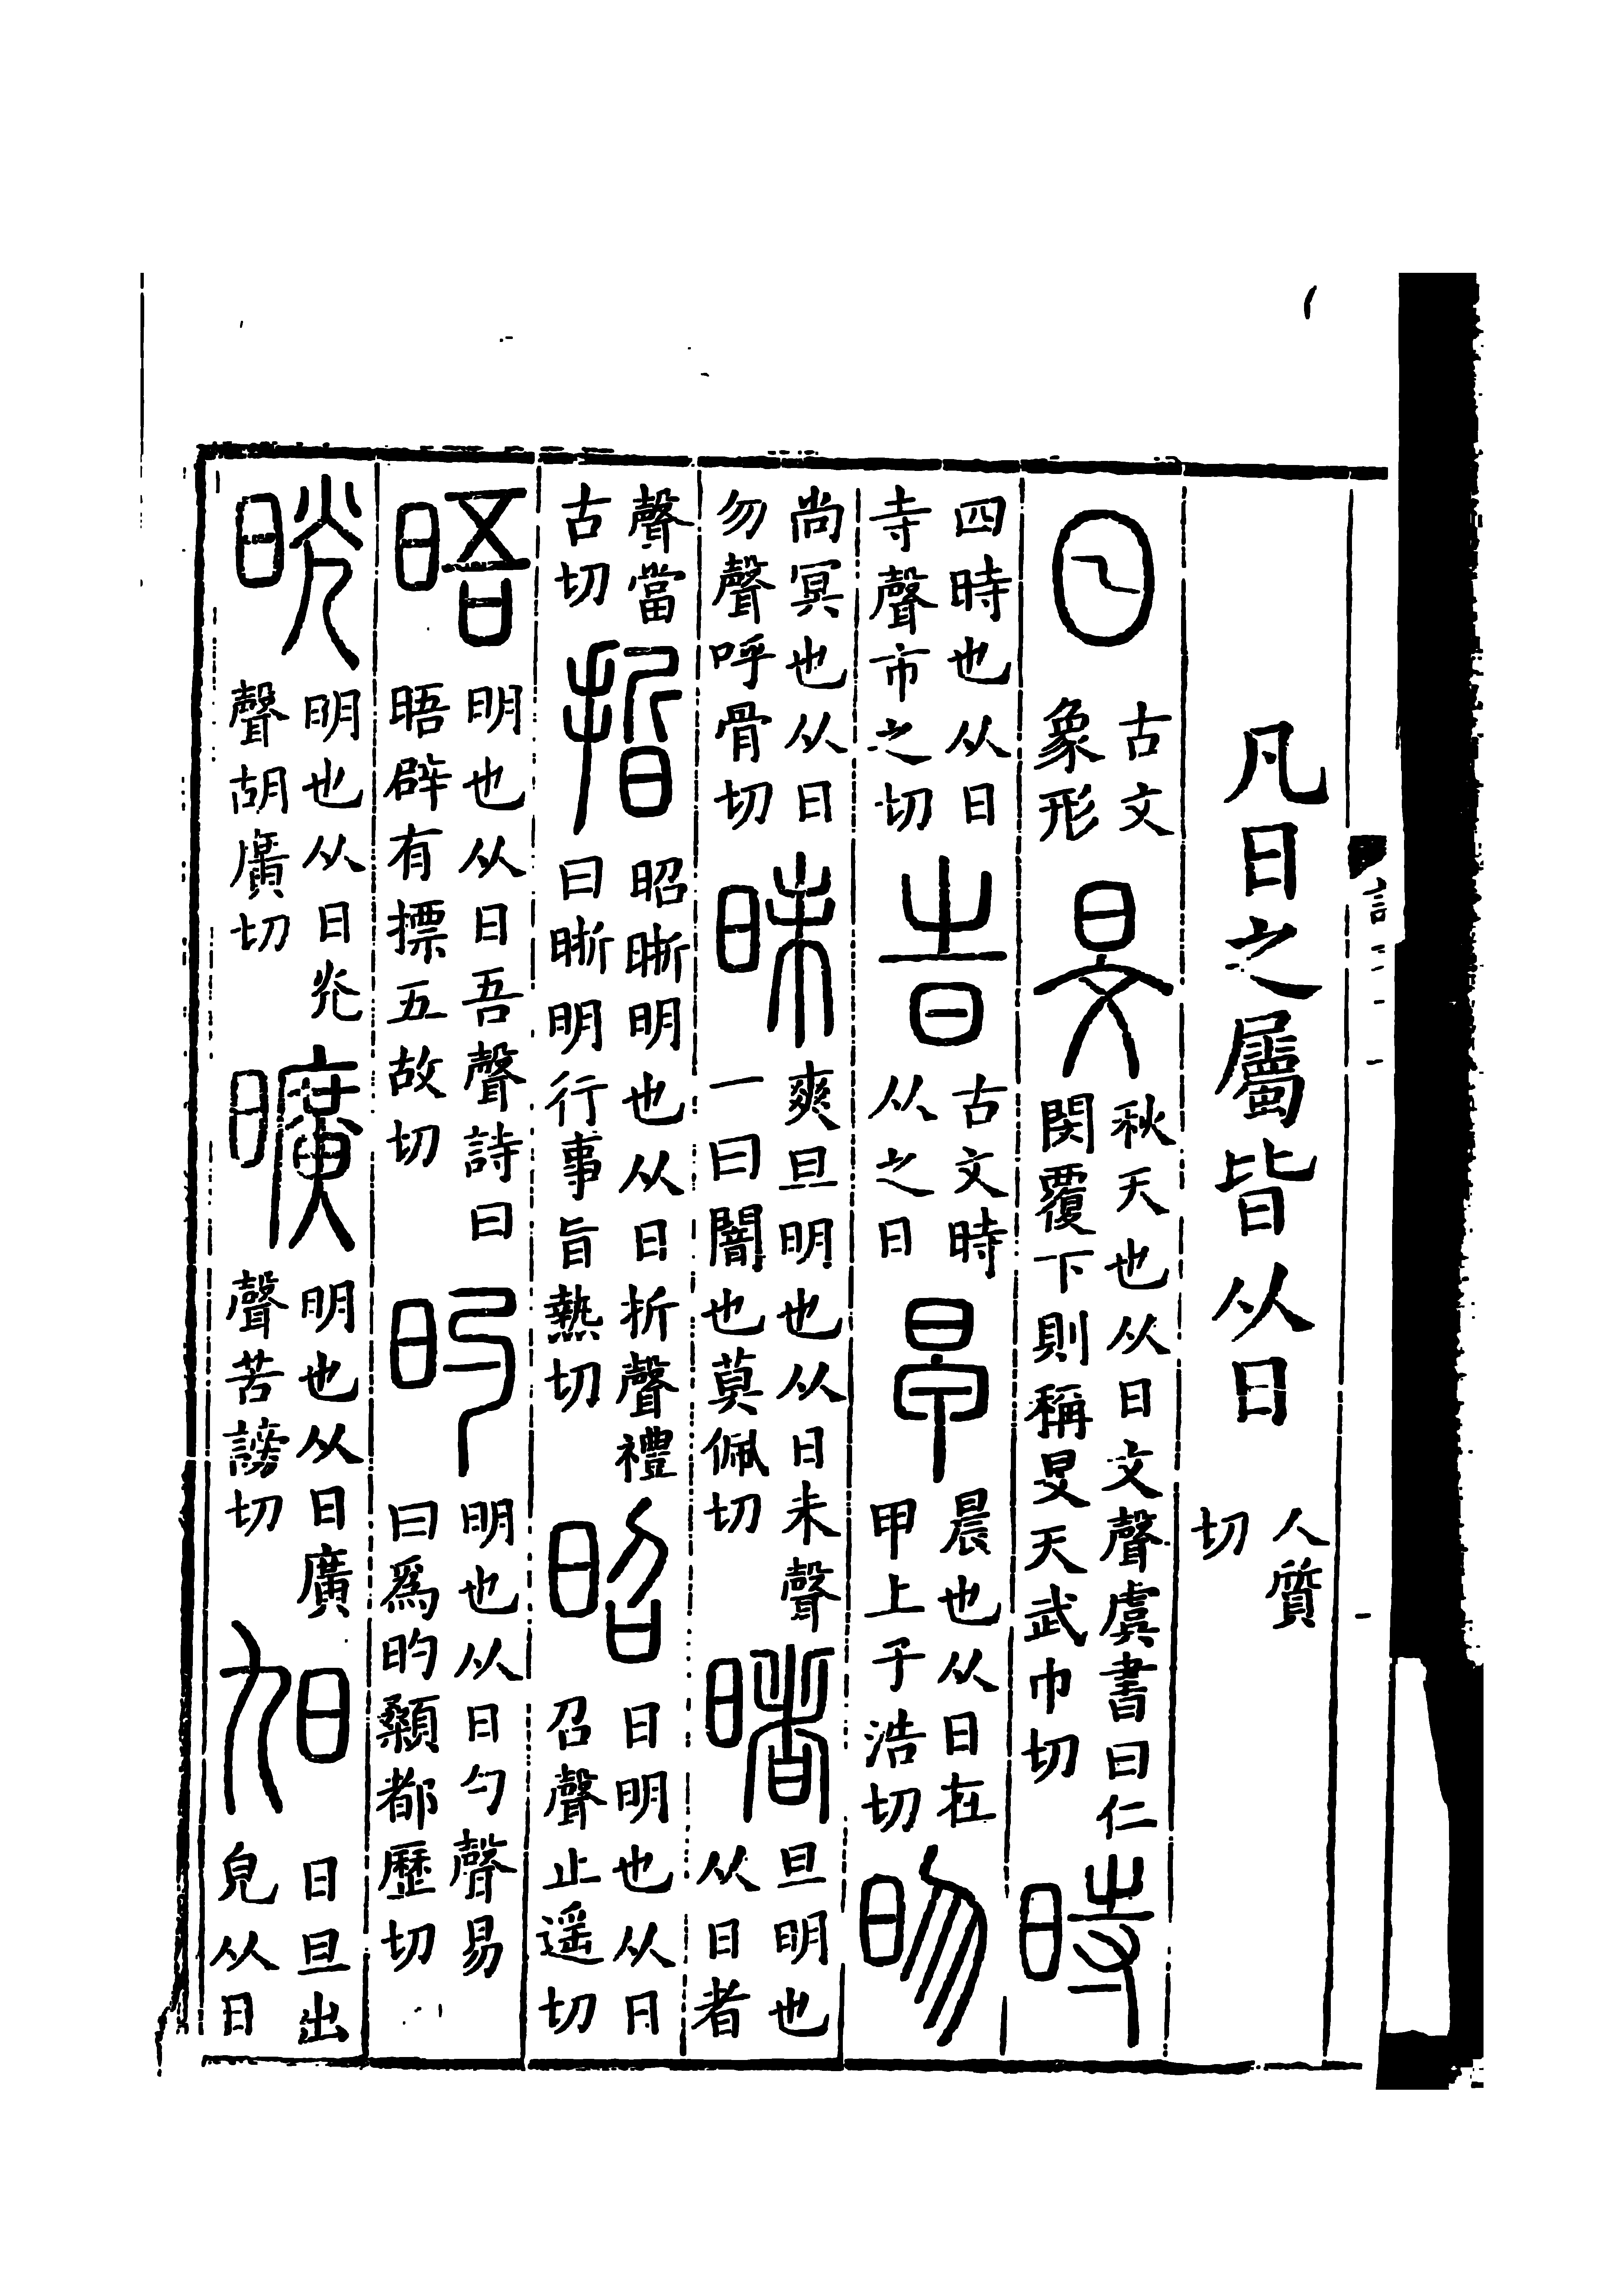 凡日之屬皆从日人質切
日古文象形旻秋天也从日文聲虞書曰仁閔覆下則稱旻天武巾切時
四時也从日寺聲市之切旹古文時从之日早晨也从日在甲上子浩切昒
尚冥也从日勿聲呼骨切昧爽旦明也从日未聲一曰闇也莫佩切暏旦明也从日者
聲當古切晢昭晣明也从日折聲禮曰晣明行事旨熱切昭日明也从日召聲止遥切
晤明也从日吾聲詩曰晤辟有摽五故切旳明也从日勺聲易曰爲旳顙都歷切
晄明也从日灮聲胡廣切曠明也从日廣聲苦謗切旭日旦出皃从日